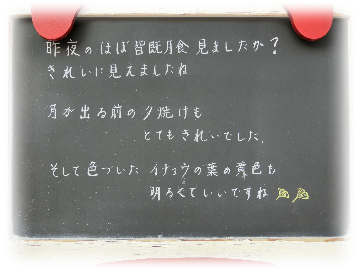 昨夜のほぼ皆既月食見ましたか?
きれいに見えましたね
月が出る前の夕焼けも
とてもきれいでした。
そして色づいた イチョウの葉の黄色も
明るくていいですね